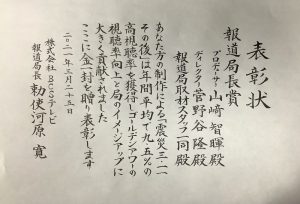 表彰状
報道局長賞
プロデューサー 山崎智暉殿
ディレクター 菅野谷隆殿
報道局取材スタッフ一同殿
あなた方の制作による「震災三・一一
その後」は年間平均で九.五%の
高視聴率を獲得しゴールデンアワーの
視聴率向上と局のイメージアップに
大きく貢献されました
ここに金一封を贈り表彰します
二〇二一年三月二十五日
株式会社 テレビ
報道局長 勅使河原 寛